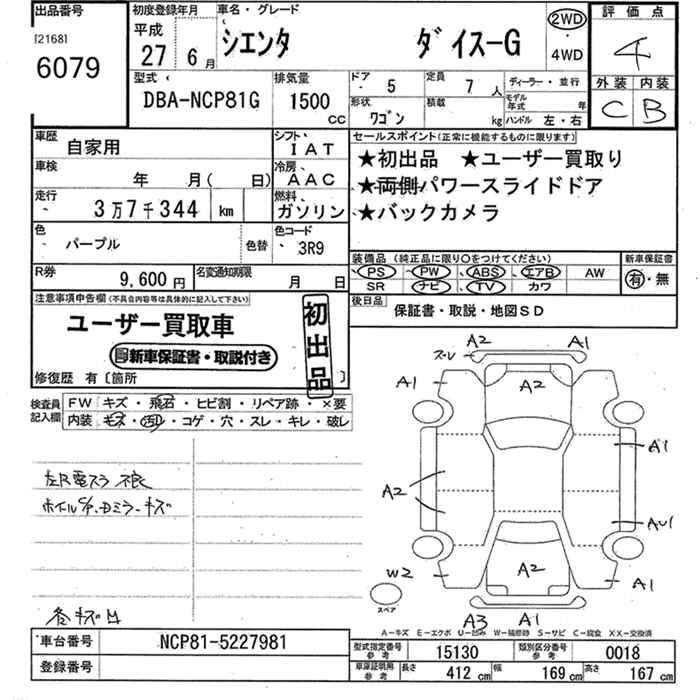 出品番号
[2168]
6079
初度登録年月
平成
27 6月
車名・グレード
シエンタ ダイス-G
2WD
・
4WD
評価点
4
外装 内装
C B
型式
DBA-NCP81G
排気量
1500 CC
ドア 5
定員 7 人
ディーラー・並行
形状 ワゴン
積載 kg
モデル年式 年
ハンドル 左・右
車歴 自家用
シフト IAT
車検 年 月( 日)
冷房 AAC
走行 3万7千344 km
燃料 ガソリン
セールスポイント(正常に機能するものに限ります)
★初出品 ★ユーザー買取り
★両側パワースライドドア
★バックカメラ
色 パープル
色替
色コード 3R9
R券 9,600円
名変通知期限 月 日
装備品 (純正品に限り○をつけてください)
PS ・ PW ・ ABS ・ エアB ・ AW
SR ナビ ・ TV カワ
新車保証書
有・無
後日品 保証書・取説・地図SD
注意事項申告欄(不具合内容等は具体的に記入して下さい)
ユーザー買取車
新車保証書・取説付き
初出品
修復歴 有〔箇所 〕
検査員記入欄
FW キズ・飛石・ヒビ割・リペア跡・×要
内装 キズ・汚れ・コゲ・穴・スレ・キレ・破レ
左R電スラ不良
ホイルC/P、Dミラーキズ
各キズ凹
A2 A1
スレ
A1 A2
A1
A2
AU1
W2 A2 A1
スペア
A3 A1
A-キズ E-エクボ U-凹み W-補修跡 S-サビ C-腐食 XX-交換済
車台番号 NCP81-5227981
登録番号
型式指定番号 参考 15130
類別区分番号 参考 0018
車庫証明用 参考 長さ 412 cm 幅 169 cm 高さ 167 cm